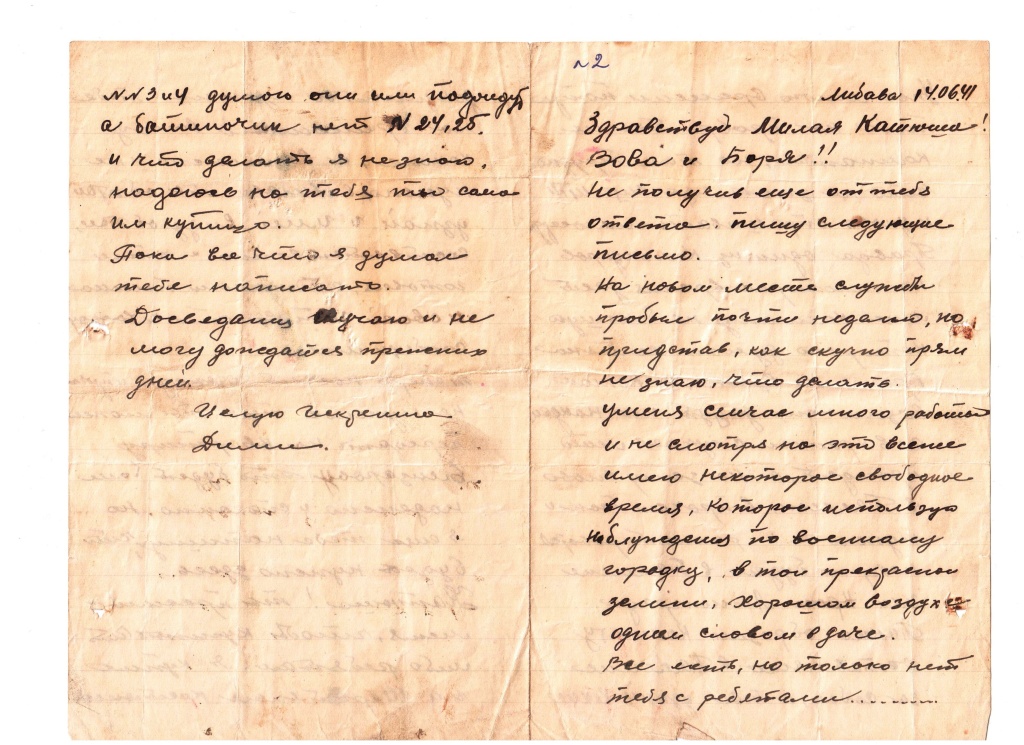 №2
Либава 14.06.41
Здравствуй Милая Катюша!
Вова и Боря!!
Не получив еще от тебя
ответа. пишу следующие
письмо.
На новом месте службы
пробыл почти неделю, но
придстав, как скучно прям
не знаю, что делать.
у меня сейчас много работы
и не смотря на это всеже
имею некоторое свободное
время, которое использую
на блуждения по военному
городку, в той прекрасной
зелини, хорошом воздухе
одним словом в даче.
Все есть, но только нет
тебя с ребятами..........
№№ 3 и 4 думою они им подойдут
а батиночик нет № 24, 25.
и что делать я не знаю.
надеюсь на тебя ты сама
им купишь.
Пока все что я думал
тебе написать.
Досведания скучаю и не
могу дождатся
дней.
Целую Искренно